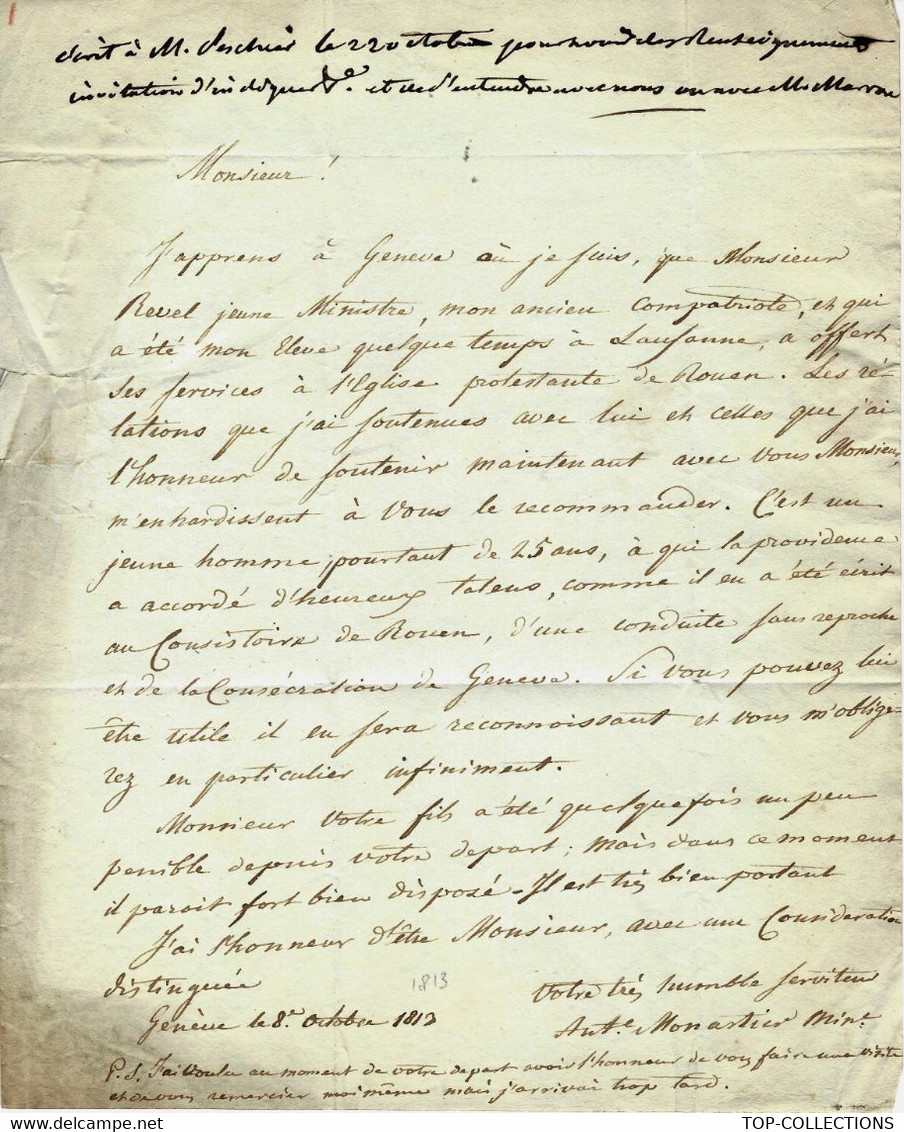 écrit à M. Peschier le 22 octobre pour avoir des Renseignements
invitation d'indiquer et de s'entendre avec nous ou avec M. Marron
Monsieur !
J'apprens à Geneve où je suis, que Monsieur
Revel jeune Ministre, mon ancien compatriote, et qui
a été mon Eleve quelque temps à Lausanne, a offert
ses services à l'Eglise protestante de Rouen. Les ré-
lations que j'ai soutenues avec lui et celles que j'ai
l'honneur de soutenir maintenant avec vous Monsieur,
m'enhardissent à vous le recommander. C'est un
jeune homme, pourtant de 25 ans, à qui la providence
a accordé d'heureux talens, comme il en a été écrit
au Consistoire de Rouen, d'une conduite sans reproche
et de la Consécration de Geneve. Si vous pouvez lui
être utile il en sera reconnoissant et vous m'oblige-
rez en particulier infiniment.
Monsieur Votre fils a été quelquefois un peu
penible depuis votre depart ; mais dans ce moment
il paroit fort bien disposé - Il est très bien portant
J'ai l'honneur d'être Monsieur, avec une Consideration
distinguée
1813
Votre très humble serviteur
Genève le 8.e octobre 1813
Ant.e Monastier Min.e
P.S. J'ai voulu au moment de votre depart avoir l'honneur de vous faire une visite
et de vous remercier moi même mais j'arrivai trop tard.
TOP-COLLECTIONS